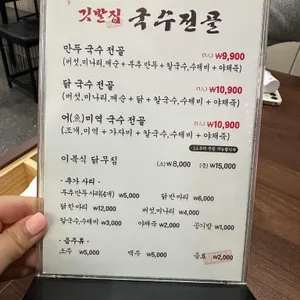 깃발집 국수전골
만두 국수 전골 (1人) ₩9,900
(버섯,미나리,배추 + 두부만두 + 칼국수,수제비 + 야채죽)
닭 국수 전골 (1人) ₩10,900
(버섯,미나리,배추 + 닭 + 칼국수,수제비 + 야채죽)
어(魚)미역 국수 전골 (1人) ₩10,900
(조개,미역 + 가자미 + 칼국수,수제비 + 야채죽)
이북식 닭무침 (소)₩8,000 (중)₩15,000
· 추가 사리 ·
두부만두사리(4개) ₩5,000 닭반마리 ₩6,000
닭한마리 ₩12,000 버섯,미나리 ₩4,000
칼국수,수제비 ₩3,000 야채죽 ₩2,000 공기밥 ₩1,000
· 음주류 ·
소주 ₩5,000 맥주 ₩5,000 음료 ₩2,000